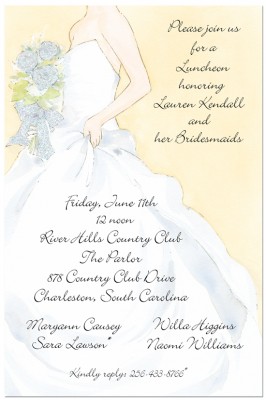 Please join us
for a
Luncheon
honoring
Lauren Kendall
and
her Bridesmaids
Friday, June 11th
12 noon
River Hills Country Club
The Parlor
878 Country Club Drive
Charleston, South Carolina
Maryann Causey Willa Higgins
Sara Lawson* Naomi Williams
Kindly reply: 256-433-8766*